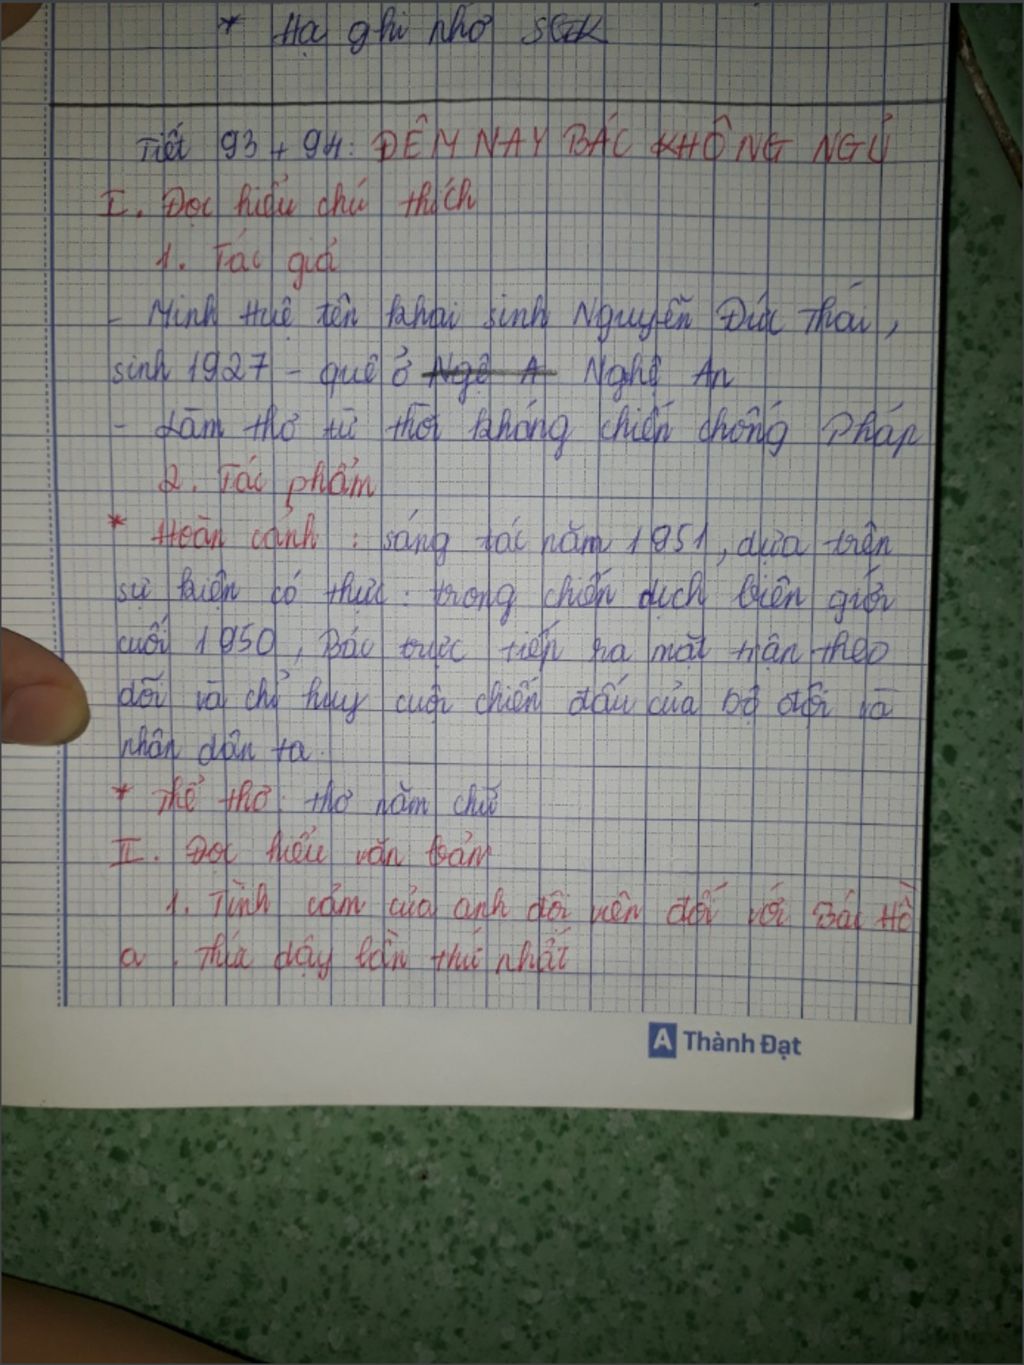 * Hạ ghi nhớ SGK
Tiết 93 + 94: ĐÊM NAY BÁC KHÔNG NGỦ
I. Đọc hiểu chú thích
1. Tác giả
- Minh Huệ tên khai sinh Nguyễn Đức Thái,
sinh 1927 - quê ở Ngệ A Nghệ An
- Làm thơ từ thời kháng chiến chống Pháp
2. Tác phẩm
* Hoàn cảnh : sáng tác năm 1951, dựa trên
sự kiện có thực : trong chiến dịch biên giới
cuối 1950, Bác trực tiếp ra mặt trận theo
dõi và chỉ huy cuộc chiến đấu của bộ đội và
nhân dân ta.
* Thể thơ : thơ năm chữ
II. Đọc hiểu văn bản
1. Tình cảm của anh đội viên đối với Bác Hồ
a. Thức dậy lần thứ nhất
A Thành Đạt